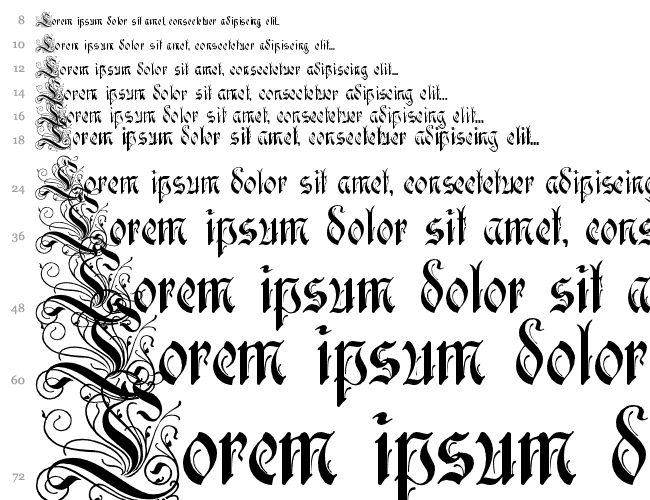 8 Lorem ipsum dolor sit amet, consectetuer adipiscing elit...
10 Lorem ipsum dolor sit amet, consectetuer adipiscing elit...
12 Lorem ipsum dolor sit amet, consectetuer adipiscing elit...
14 Lorem ipsum dolor sit amet, consectetuer adipiscing elit...
16 Lorem ipsum dolor sit amet, consectetuer adipiscing elit...
18 Lorem ipsum dolor sit amet, consectetuer adipiscing elit...
24 Lorem ipsum dolor sit amet, consectetuer adipiscing
36 Lorem ipsum dolor sit amet, cons
48 Lorem ipsum dolor sit a
60 Lorem ipsum dolor
72 Lorem ipsum d